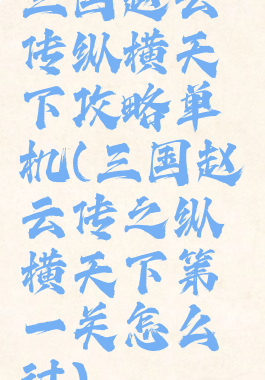 三国赵云
传纵横天
下攻略单
机(三国赵
云传之纵
横天下第
一关怎么
过)